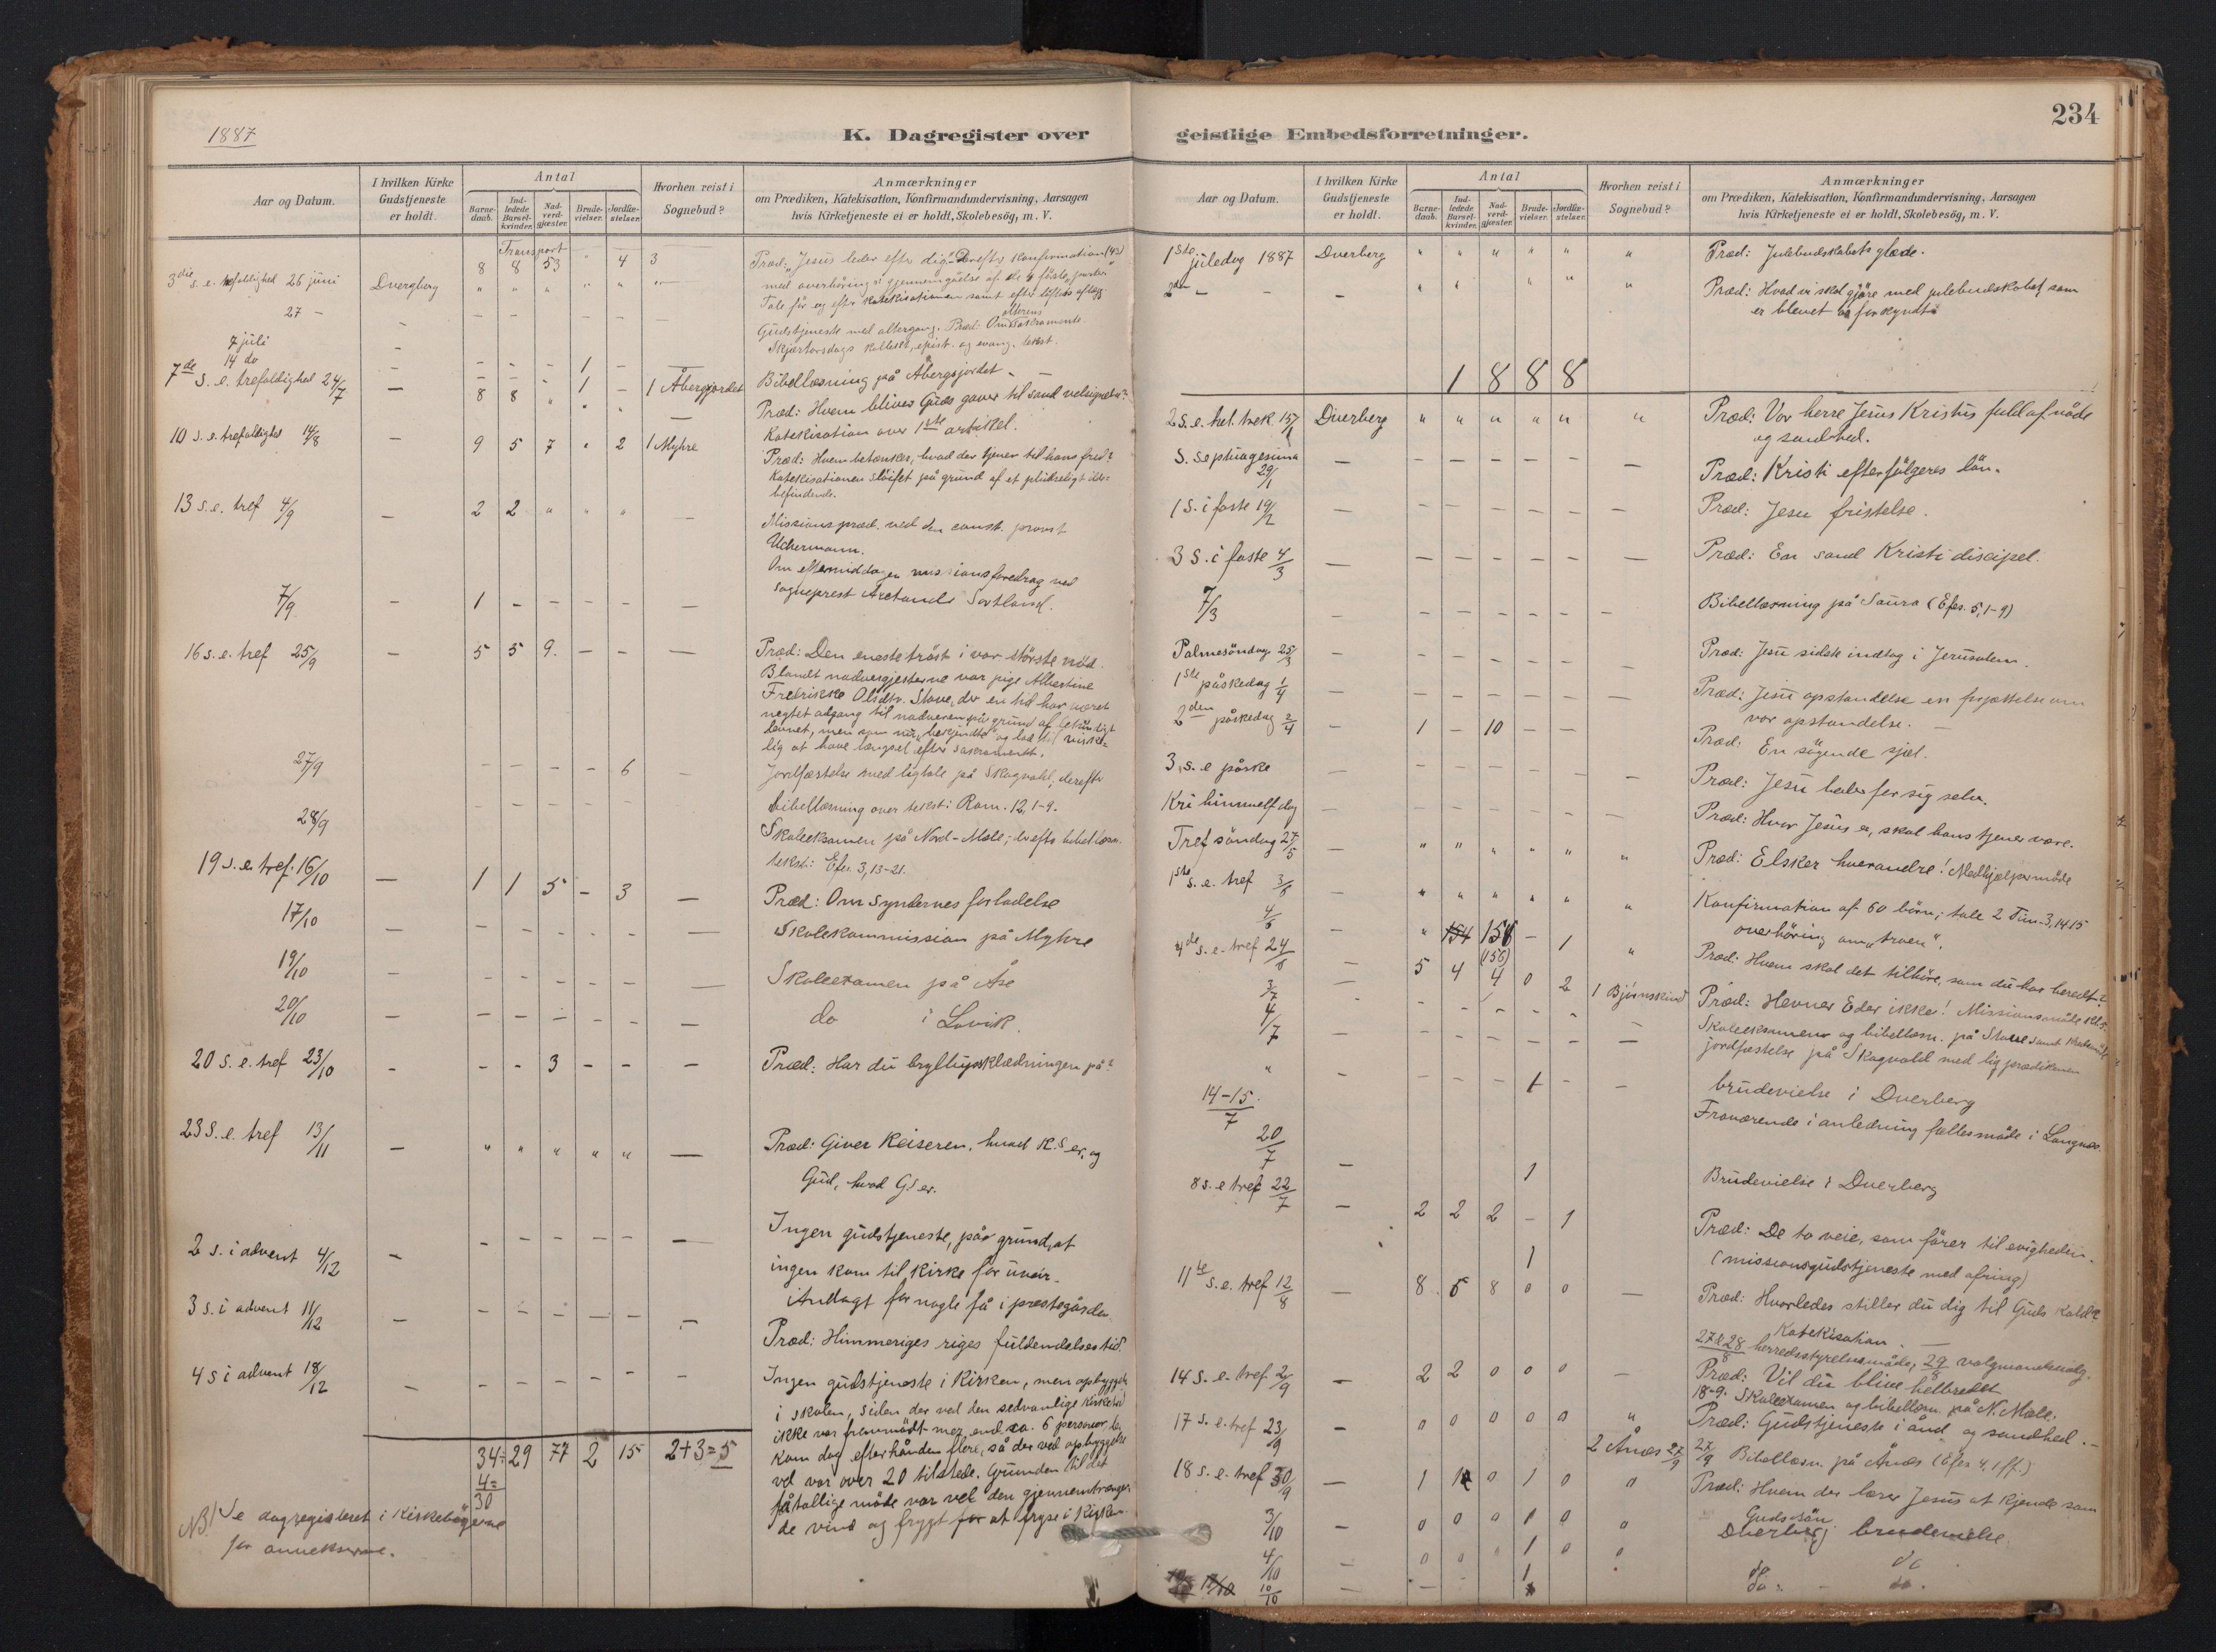 1887
K. Dagregister over
Aar og Datum.
I hvilken Kirke Gudstjeneste er holdt.
Antal
Barne-daab.
Ind-ledede Barsel-kvinder.
Nad-verd-gjæster.
Brude-vielser.
Jordfæ-stelser.
Hvorhen reist i Sognebud?
Anmærkninger
om Prædiken, Katekisation, Konfirmandundervisning, Aarsagen
hvis Kirketjeneste ei er holdt, Skolebesög, m. V.
Transport 8 8 53 - 4 3
3die s. e. trefoldighed 26 juni Dvergberg " " " " " "
Præd: "Jesus leder efter dig". Derefter konfirmation (43)
med overhöring:
Tale för og efter katekisationen samt efter löftets aflæg.
27 - - - - - - -
Gudstjeneste med altergang. Præd: Om alterens sakramente.
Skjærtorsdags kollekt, epist. og evang. tekst.
7 juli - - - - 1 -
14 do - - - - 1 - 1 Åbergsjordet
Bibellæsning på Åbergsjordet -
7de s. e. trefoldighed 24/7 - 8 8 " " "
Præd: Hvem bliver Guds gaver til sand velsignelse?
Katekisation over 1ste artikel.
10 s. e. trefoldighed 14/8 - 9 5 7 " 2 1 Myhre
Præd: Hvem betænker, hvad der tjener til hans fred?
Katekisationen slöifet på grund af et pludseligt ilde-
befindende.
13 s. e. tref 4/9 - 2 2 " " " -
Missionspræd. ved den const. provst
Uchermann.
Om eftermiddagen missionsforedrag ved
sogneprest Arctander Sortland.
7/9 - 1 - - - - -
16 s. e. tref 25/9 - 5 5 9. - - -
Præd: Den eneste tröst i vor störste nöd.
Blandt nadvergjesterne var pige Albertine
Fredrikke Olsdtr. Stave, der en tid har været
negtet adgang til nadveren på grund af letsindigt
levnet, men som nu bekjendte og lod til virke-
lig at have længsel efter sakramentet.
27/9 - - - - 6 -
Jordfæstelse med ligtale på Skogvold, derefter
bibellæsning over tekst: Rom. 12, 1-9.
28/9 - - - - -
Skoleeksamen på Nord-Mele; derefter bibellæsn.
tekst: Efes. 3, 13-21.
19 s. e. tref. 16/10 - 1 1 5 - 3 -
Præd: Om syndernes forladelse
17/10 - - - - - - -
Skolekommission på Myhre
19/10 - - - - - - -
Skoleexamen på Åse
20/10 - - - - - - -
do i Lovik.
20 s. e. tref 23/10 - - - 3 - - -
Præd: Har du bryllupsklædningen på?
23 S. e. tref 13/11 - " " " " " -
Præd: Giver Keiseren, hvad K.s er, og
Gud, hvad G.s er.
2 s. i advent 4/12 - - - - - - -
Ingen gudstjeneste, på grund, at
ingen kom til kirke for uveir.
Andagt for nogle få i prestegården.
3 s. i advent 11/12 - - - - - - -
Præd: Himmeriges riges fuldendelses tid.
4 s i advent 18/12 - - - - - - -
Ingen gudstjeneste i kirken, men opbyggelse
i skolen, siden der ved den sedvanlige kirketid
ikke var fremmödt mer end ca. 6 personer. Der
kom dog efterhånden flere, så der ved opbyggelsen
vel var over 20 tilstede. Grunden til det
fåtallige möde var vel den gjennemtrængen-
de vind og frygt for at fryse i kirken.
34÷ 29 77 2 15 2+3=5
4=
30
NB! Se dagregisteret i kirkebögerne
for annekserne.
234
geistlige Embedsforretninger.
Aar og Datum.
I hvilken Kirke Gudstjeneste er holdt.
Antal
Barne-daab.
Ind-ledede Barsel-kvinder.
Nad-verd-gjæster.
Brude-vielser.
Jordfæ-stelser.
Hvorhen reist i Sognebud?
Anmærkninger
om Prædiken, Katekisation, Konfirmandundervisning, Aarsagen
hvis Kirketjeneste ei er holdt, Skolebesög, m. V.
1ste juledag 1887 Dverberg " " " " " "
Præd: Julebudskabets glæde.
2den - - - " " " " "
Præd: Hvad vi skal gjöre med julebudskabet, som
er blevet os forkyndt
1 8 8 8
2 s. e. hel. trek. 15/1 Dverberg " " " " " "
Præd: Vor herre Jesus Kristus fuld af nåde
og sandhed.
S. septuagesima 29/1 - - - - - - -
Præd: Kristi efterfölgeres lön.
1 S. i faste 19/2 - - - - - - -
Præd: Jesu fristelse.
3 S. i faste 4/3 - - - - - - -
Præd: En sand Kristi discipel.
7/3 - - - - - - -
Bibellæsning på Saura (Efes. 5, 1-9)
Palmesöndag 25/3 - - - - - - -
Præd: Jesu sidste indtog i Jerusalem.
1ste påskedag 1/4 - - - - - - -
Præd: Jesu opstandelse en forjættelse om
vor opstandelse. -
2den påskedag 2/4 - 1 - 10 - - -
Præd: En sögende sjæl.
3. s. e påske - - - - - - -
Præd: Jesu taler for sig selv.
Kri himmelf. dag - - - - - - -
Præd: Hvor Jesus er, skal hans tjener være.
Tref söndag 27/5 - " " " " " "
Præd: Elsker hverandre! Medhjælpermöde
1ste s. e. tref 3/6 - " " " " " "
Konfirmation af 60 börn; tale 2 Tim. 3, 14.15
overhöring om "troen".
4/6 - " 154 156 - 1 "
(156)
Præd: Hvem skal det tilhöre, som du har beredt?
4de s. e. tref 24/6 - 5 4 4 0 2 1 Bjørnskind
Præd: Hevner Eder ikke! Missionsmöde kl. 5.
3/7 - - - - - - -
Skoleeksamen og bibellæsn. på Stave
4/7 - - - - - - -
jordfæstelse på Skogvold med ligprædiken
" - - - - 1 - -
brudevielse i Dverberg
14-15/7
Fraværende i anledning fællesmöde i Langnes.
20/7 - 1
Brudevielse i Dverberg
8 s. e tref 22/7 - 2 2 2 - 1
Præd: De to veie, som förer til evigheden.
(missionsgudstjeneste med ofring)
1
11te s. e. tref 12/8 - 8 5 8 0 0 -
Præd: Hvorledes stiller du dig til Guds kald?
Katekisation. -
27 & 28/8 herredsstyrelsesmöde; 29/8 valgmandsvalg.
14 S. e. tref 2/9 - 2 2 0 0 0 -
Præd: Vil du blive helbredet
18-9. Skoleexamen og bibellæsn. på N. Mele.
17 s. e. tref 23/9 - 0 0 0 0 0 "
Præd: Gudstjeneste i ånd og sandhed. -
2 Ånes 27/9
27/9 Bibellæsn. på Ånes (Efes 4, 1 ff.)
18 s. e. tref 30/9 - 1 1 0 1 0 0
Præd: Hvem der lærer Jesus at kjende som
Guds sön
3/10 - 0 0 0 1 0 0
Dverberg brudevielse
4/10 - 0 0 0 1 0 0
do do
10/10 - - 1
do. - do.